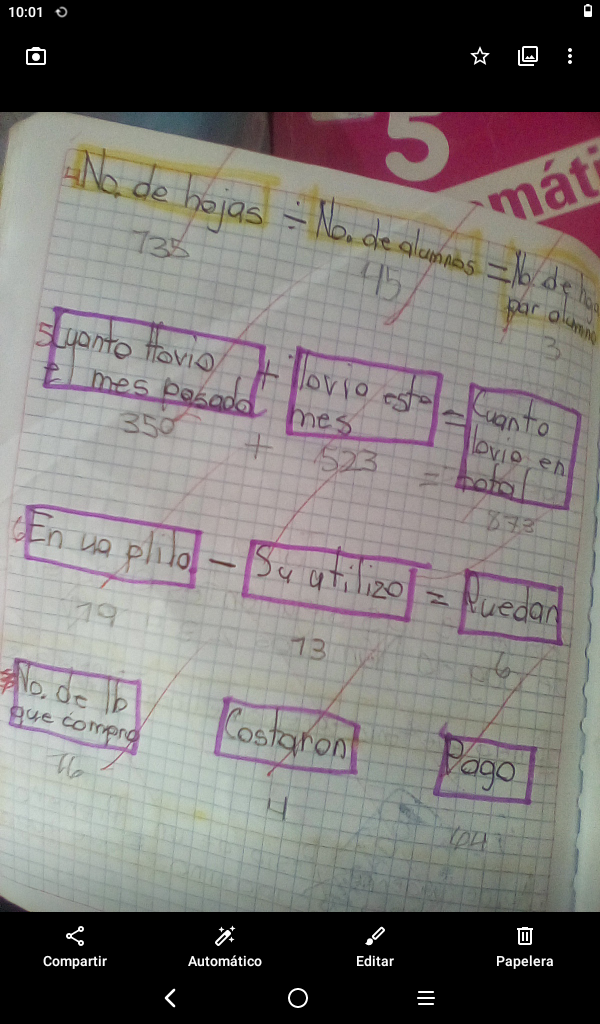 10:01
5
máti
4 No. de hojas ÷ No. de alumnos = No. de hojas
par alumno
135 45 3
5 Cuanto llovio
El mes pasado + llovio este
mes = Cuanto
llovio en
total
350 + 523 = 873
6 En un plilo - Su utilizo = Quedan
19 13 6
No. de lb
que compro Costaron Pago
16 4 64
Compartir Automático Editar Papelera